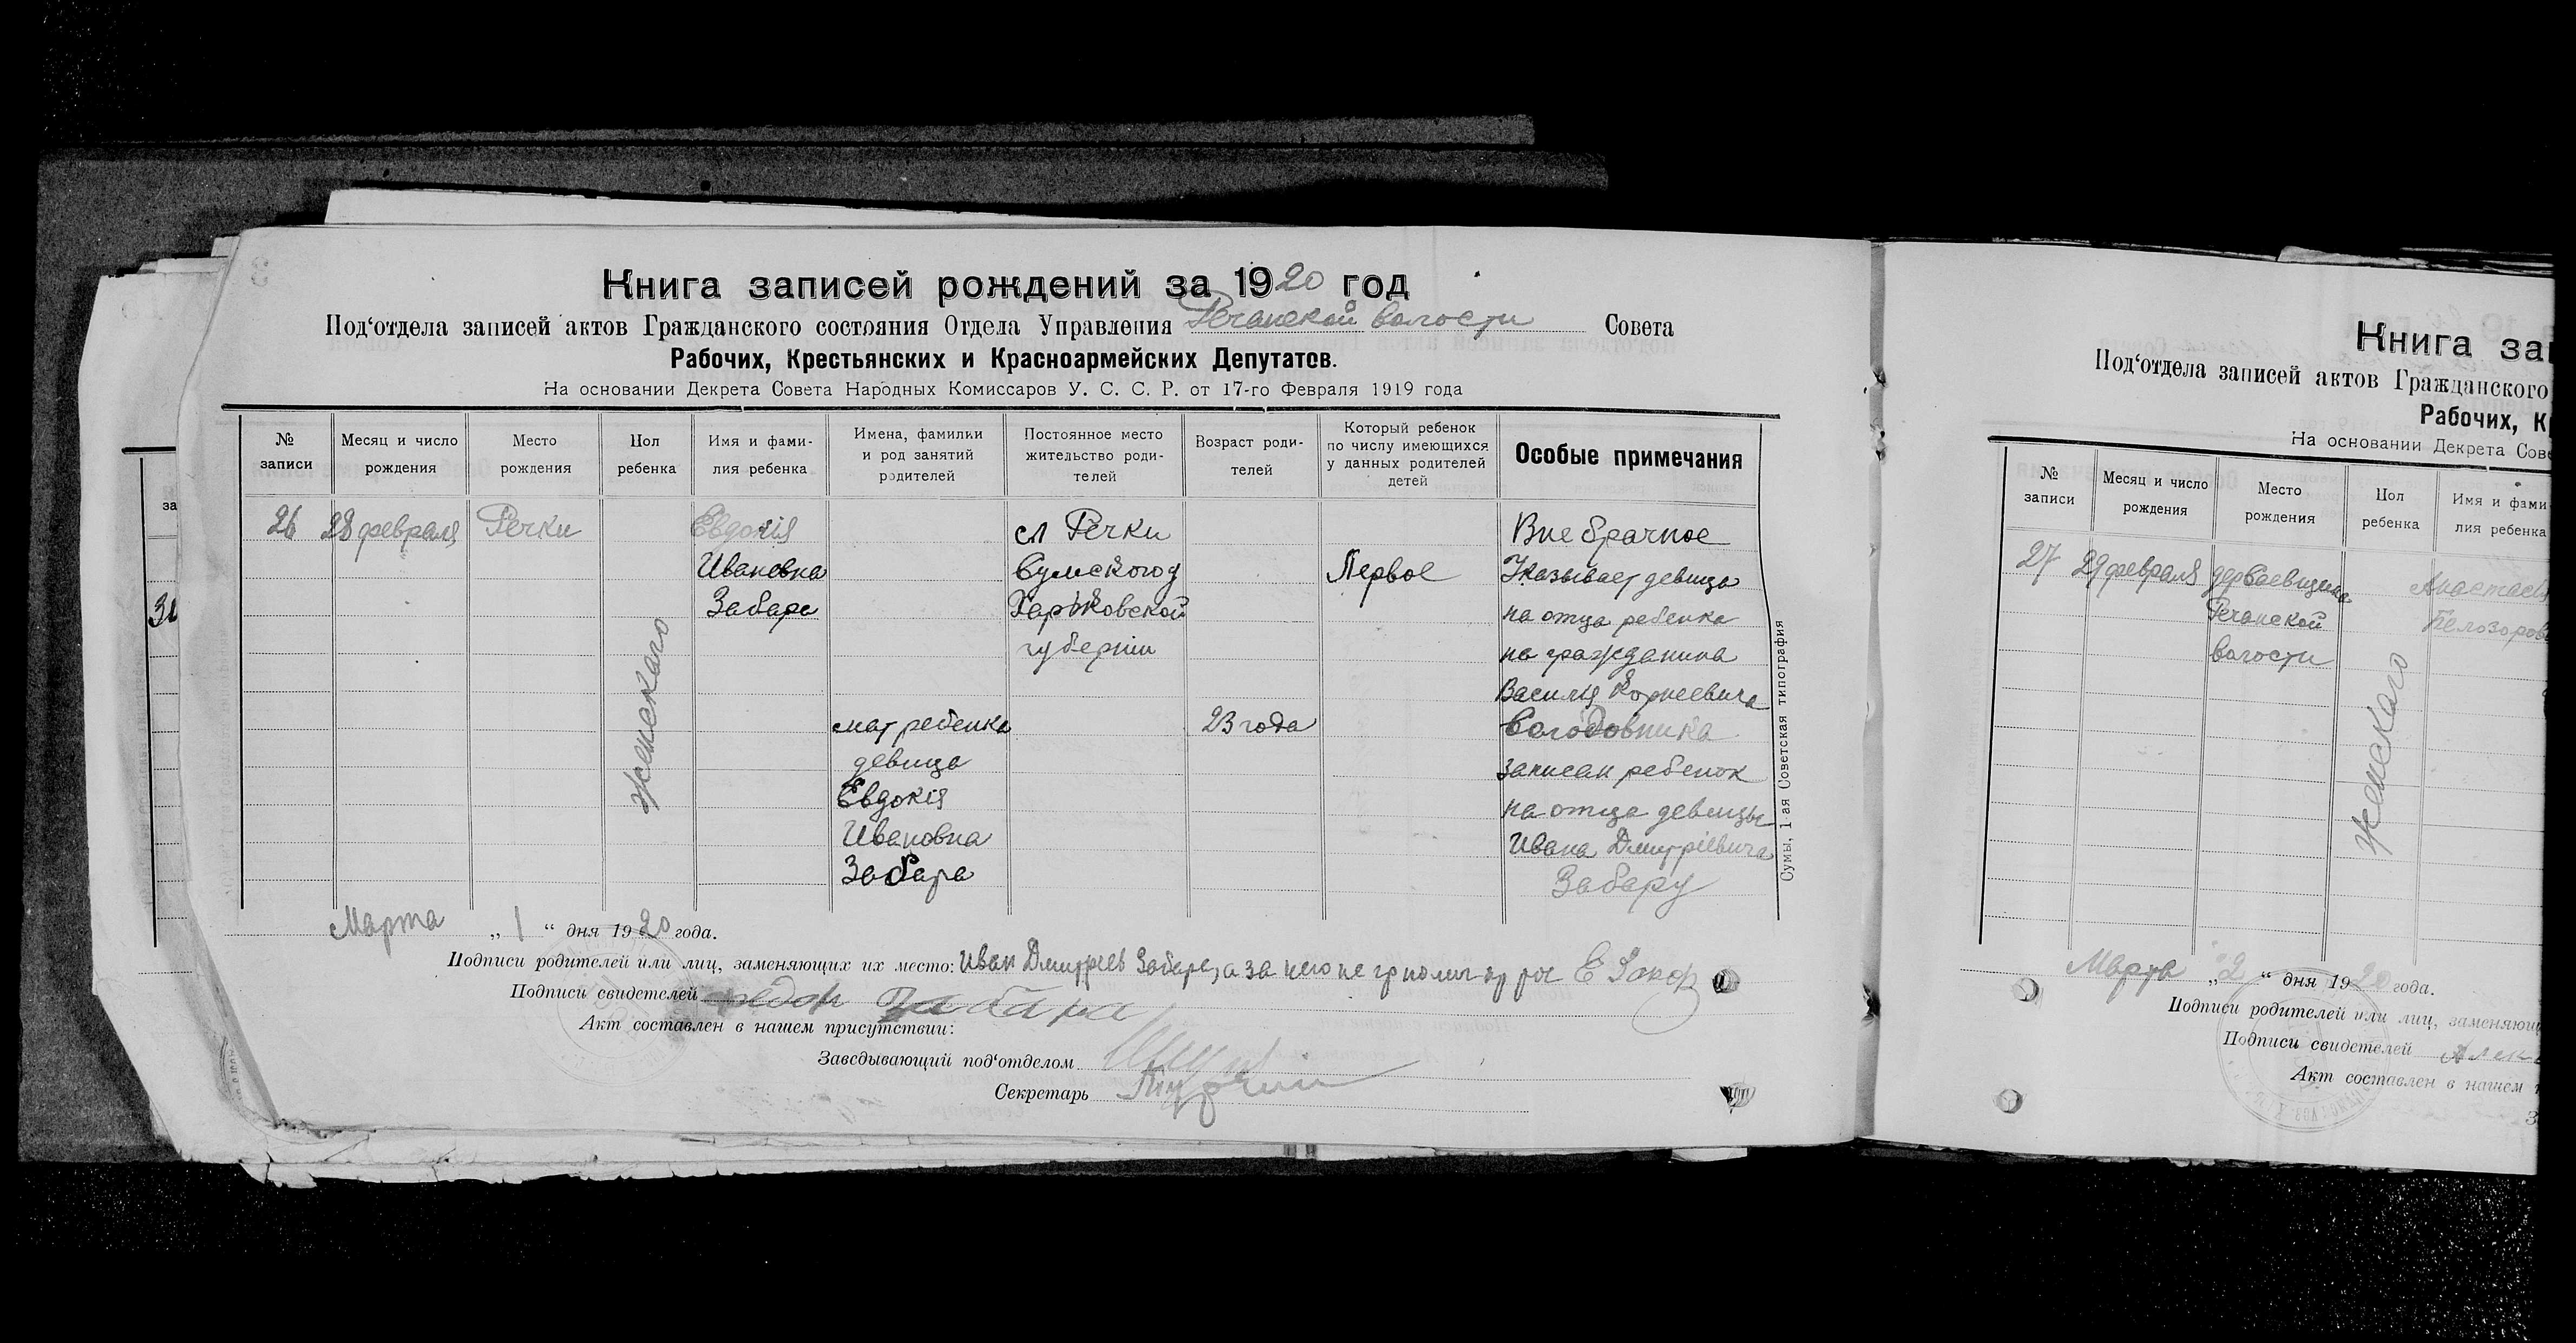 Книга записей рождений за 1920 год
Под‘отдела записей актов Гражданского состояния Отдела Управления Речанской волости Совета
Рабочих, Крестьянских и Красноармейских Депутатов.
На основании Декрета Совета Народных Комиссаров У. С. С. Р. от 17-го Февраля 1919 года
№ записи
Месяц и число рождения
Место рождения
Пол ребенка
Имя и фами-
лия ребенка
Имена, фамилии
и род занятий
родителей
Постоянное место
жительство роди-
телей
Возраст роди-
телей
Который ребенок
по числу имеющихся
у данных родителей
детей
Особые примечания
26
28 февраля
Речки
женского
Евдокія
Ивановна
Забара
мат ребенка
девица
Евдокія
Ивановна
Забара
сл Речки
Сумского у
Харьковской
губерніи
23 года
Первое
Вне брачное
Указывает девица
на отца ребенка
на гражданина
Василія Корнеевича
записан ребенок
на отца девицы
Ивана Дмитріевича
Забару
Марта „ 1 “ дня 1920 года.
Подписи родителей или лиц, заменяющих их место: Иван Дмитріев Забара, а за него не
Подписи свидетелей Забара
Акт составлен в нашем присутствии:
Заведывающий под‘отделом
Секретарь
Сумы, 1-ая Советская типография
за
Книга за
Под‘отдела записей актов Гражданского
Рабочих, К
На основании Декрета Сове
№ записи
Месяц и число рождения
Место рождения
Пол ребенка
Имя и фами
лия ребенка
27
29 февраля
Речанской
волости
женского
Марта „ 2 “ дня 1920 года.
Подписи родителей или лиц, заменяющ
Подписи свидетелей
Акт составлен в нашем
З